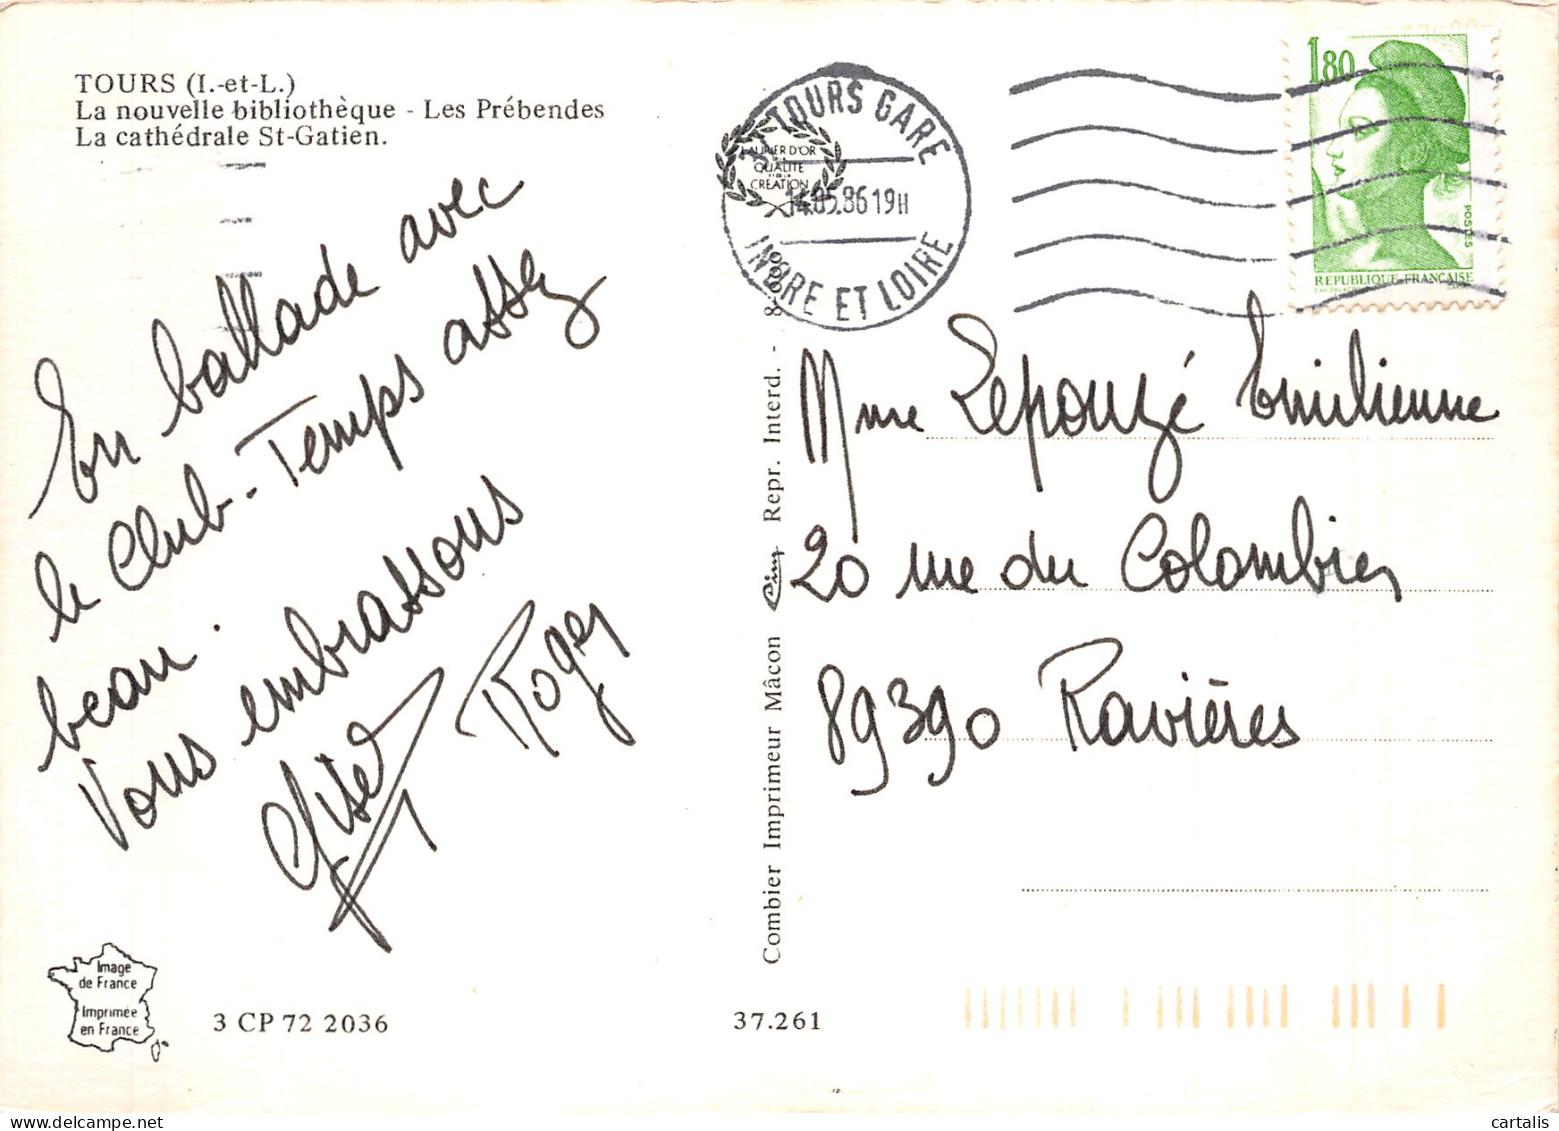 TOURS (I.-et-L.)
La nouvelle bibliothèque - Les Prébendes
La cathédrale St-Gatien.
En ballade avec
le Club-Temps assez
beau.
Vous embrassons
Roger
Image
de France
Imprimée
en France
3 CP 72 2036
37.261
Combier Imprimeur Mâcon Cim Repr. Interd. - 8
37 TOURS GARE
LAURIER D'OR
QUALITE
CREATION
14.05.86 19H
INDRE ET LOIRE
1,80
POSTES
REPUBLIQUE FRANÇAISE
Mme Lepouzé Emilienne
20 rue du Colombier
89390 Ravières
cartalis